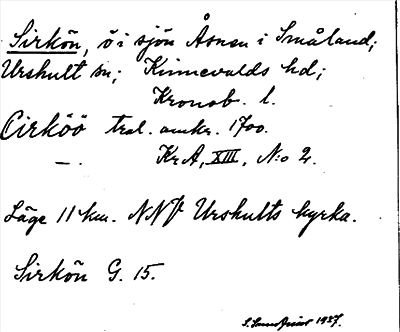 Sirkön, ö i sjön Åsnen i Småland;
Urshult sn; Kinnevalds hd;
Kronob. l.
Cirköö trol. omkr. 1700.
—. KrA, XIII, N:o 2.
Läge 11 km. NNV Urshults kyrka.
Sirkön G. 15.
1927.